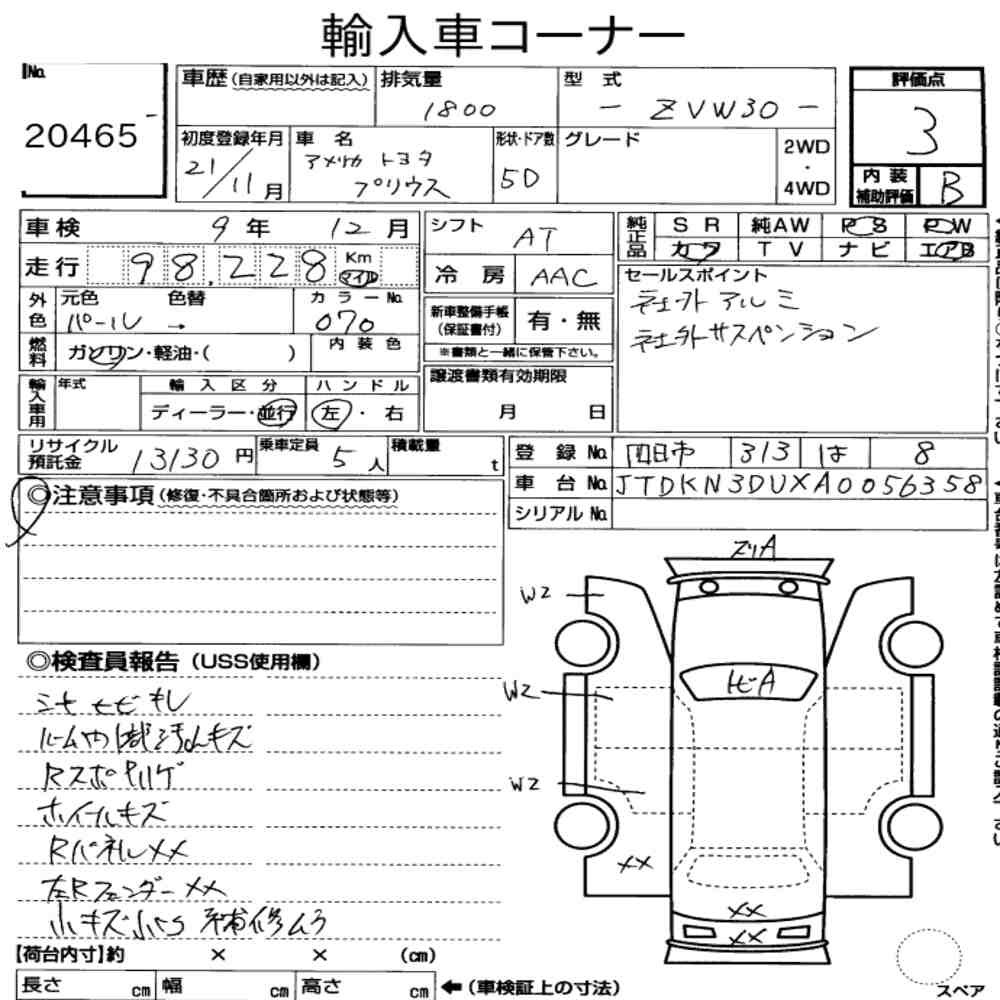 輸入車コーナー
No. 20465
車歴(自家用以外は記入)
排気量 1800
型式 - ZVW30 -
評価点 3
初度登録年月 21/11月
車名 アメリカ トヨタ プリウス
形状・ドア数 5D
グレード
2WD・4WD
内装補助評価 B
車検 9年 12月
シフト AT
純正品 SR 純AW PS PW
カワ TV ナビ エアB
走行 98,228 Km マイル
冷房 AAC
セールスポイント
社外アルミ
社外サスペンション
外色 元色 パール 色替 → カラーNo. 070
新車整備手帳(保証書付) 有・無
※書類と一緒に保管下さい。
燃料 ガソリン・軽油・( )
内装色
譲渡書類有効期限
月 日
輸入車用 年式
輸入区分 ディーラー・並行
ハンドル 左・右
リサイクル預託金 13130円
乗車定員 5人
積載量 t
登録No. 四日市 313 は 8
車台No. JTDKN3DUXA0056358
シリアルNo.
◎注意事項(修復・不具合箇所および状態等)
◎検査員報告(USS使用欄)
ルーム内 汚れキズ
ホイールキズ
Rパネルxx
左Rフェンダーxx
小キズ 補修ムラ
A
W2
W2
トビA
W2
xx
xx
xx
【荷台内寸】約 × × (cm)
長さ cm 幅 cm 高さ cm ←(車検証上の寸法)
スペア